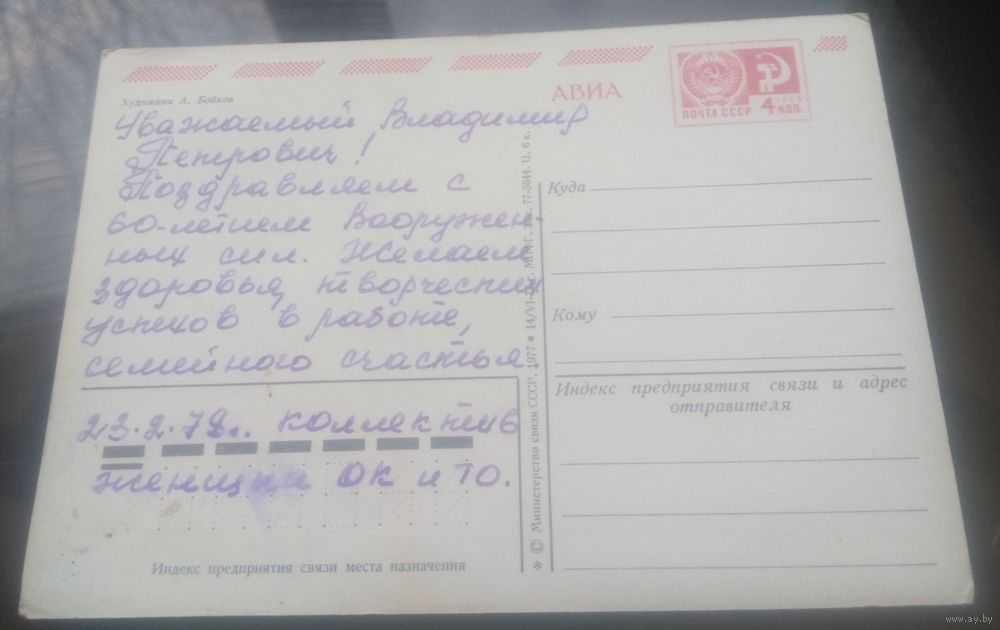 Художник А. Бойков
АВИА
1966
ПОЧТА СССР 4 КОП.
Уважаемый Владимир
Петрович!
Поздравляем с
60-летием Вооружен-
ных сил. Желаем
здоровья, творческих
успехов в работе,
семейного счастья.
23.2.78г. коллектив
женщин ОК и ТО.
Индекс предприятия связи места назначения
Ж © Министерство связи СССР. 1977 • 14/VI- МПФГ. 77-5044. Ц. 6 к.
Куда
Кому
Индекс предприятия связи и адрес
отправителя
www.ay.by